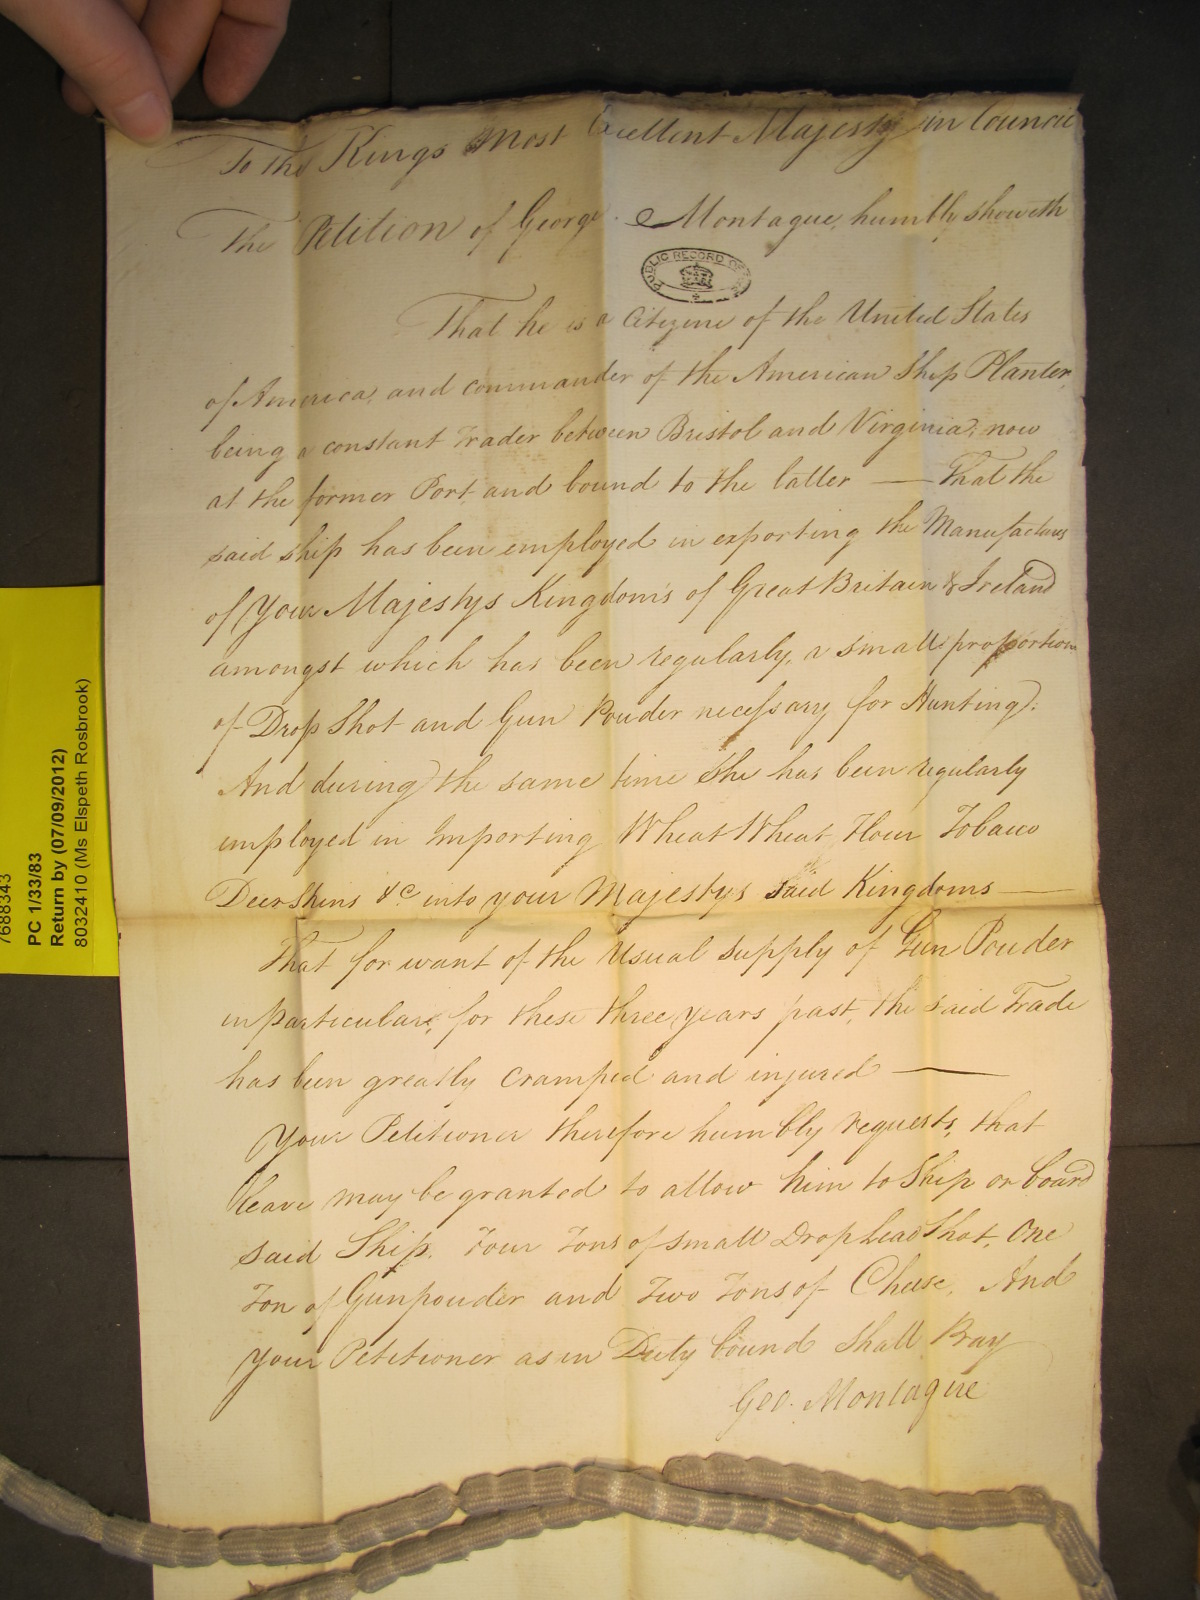 To the Kings Most Excellent Majesty in Council
The Petition of George Montague, humbly showeth
PUBLIC RECORD OFF
That he is a Citizene of the United States
of America, and commander of the American Ship Planter,
being a constant Trader between Bristol and Virginia, now
at the former Port and bound to the latter — That the
said ship has been employed in exporting the Manufactures
of Your Majestys Kingdoms of Great Britain & Ireland
amongst which has been regularly, a small proportion
of Drop Shot and Gun Pouder necessary for Hunting;
And during the same time She has been regularly
employed in Importing Wheat Wheat Flour Tobacco
Deerskins &c into your Majestys said Kingdoms —
That for want of the Usual supply of Gun Pouder
in particular, for these three years past, the said Trade
has been greatly cramped and injured —
Your Petitioner therefore humbly requests, that
leave may be granted to allow him to Ship on board
said Ship. Four Tons of small Drop Lead Shot, One
Ton of Gunpouder and Two Tons of Cheese, And
your Petitioner as in Duty bound Shall Pray
Geo. Montague
7688343
PC 1/33/83
Return by (07/09/2012)
8032410 (Ms Elspeth Rosbrook)